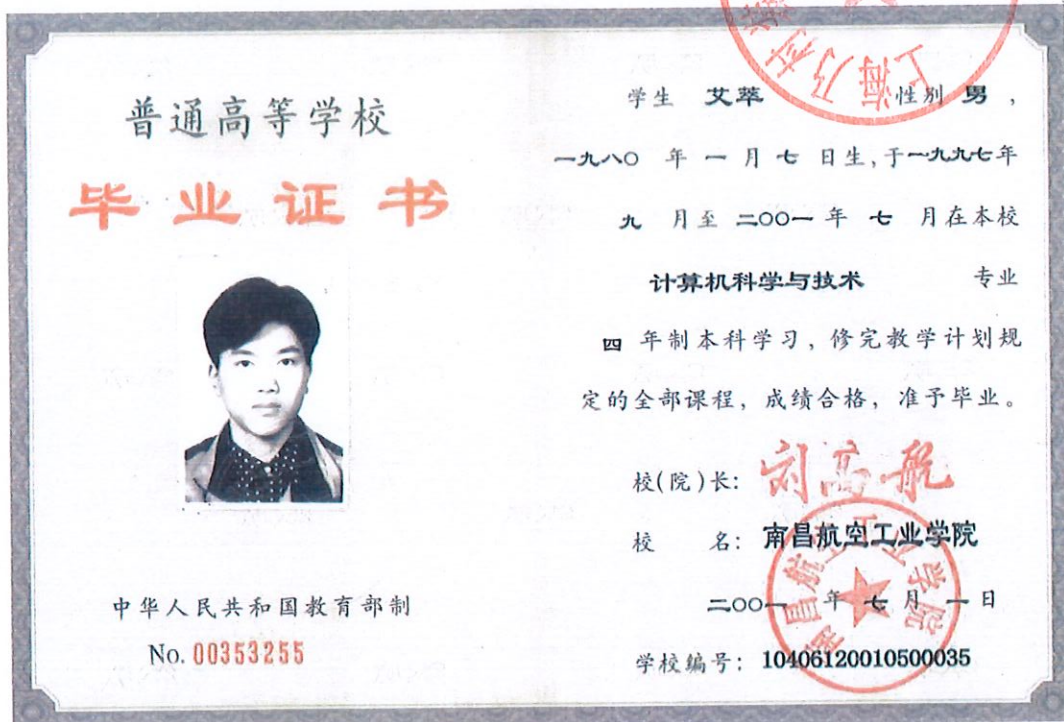 普通高等学校
毕业证书
中华人民共和国教育部制
No. 00353255
上海乃村
学生 艾萃 性别 男,
一九八〇 年 一 月 七 日生,于一九九七年
九 月至 二〇〇一 年 七 月在本校
计算机科学与技术 专业
四 年制本科学习,修完教学计划规
定的全部课程,成绩合格,准予毕业。
校(院)长: 刘高航
校 名: 南昌航空工业学院
二〇〇一 年 七 月 一 日
学校编号: 10406120010500035
南昌航空工业学院